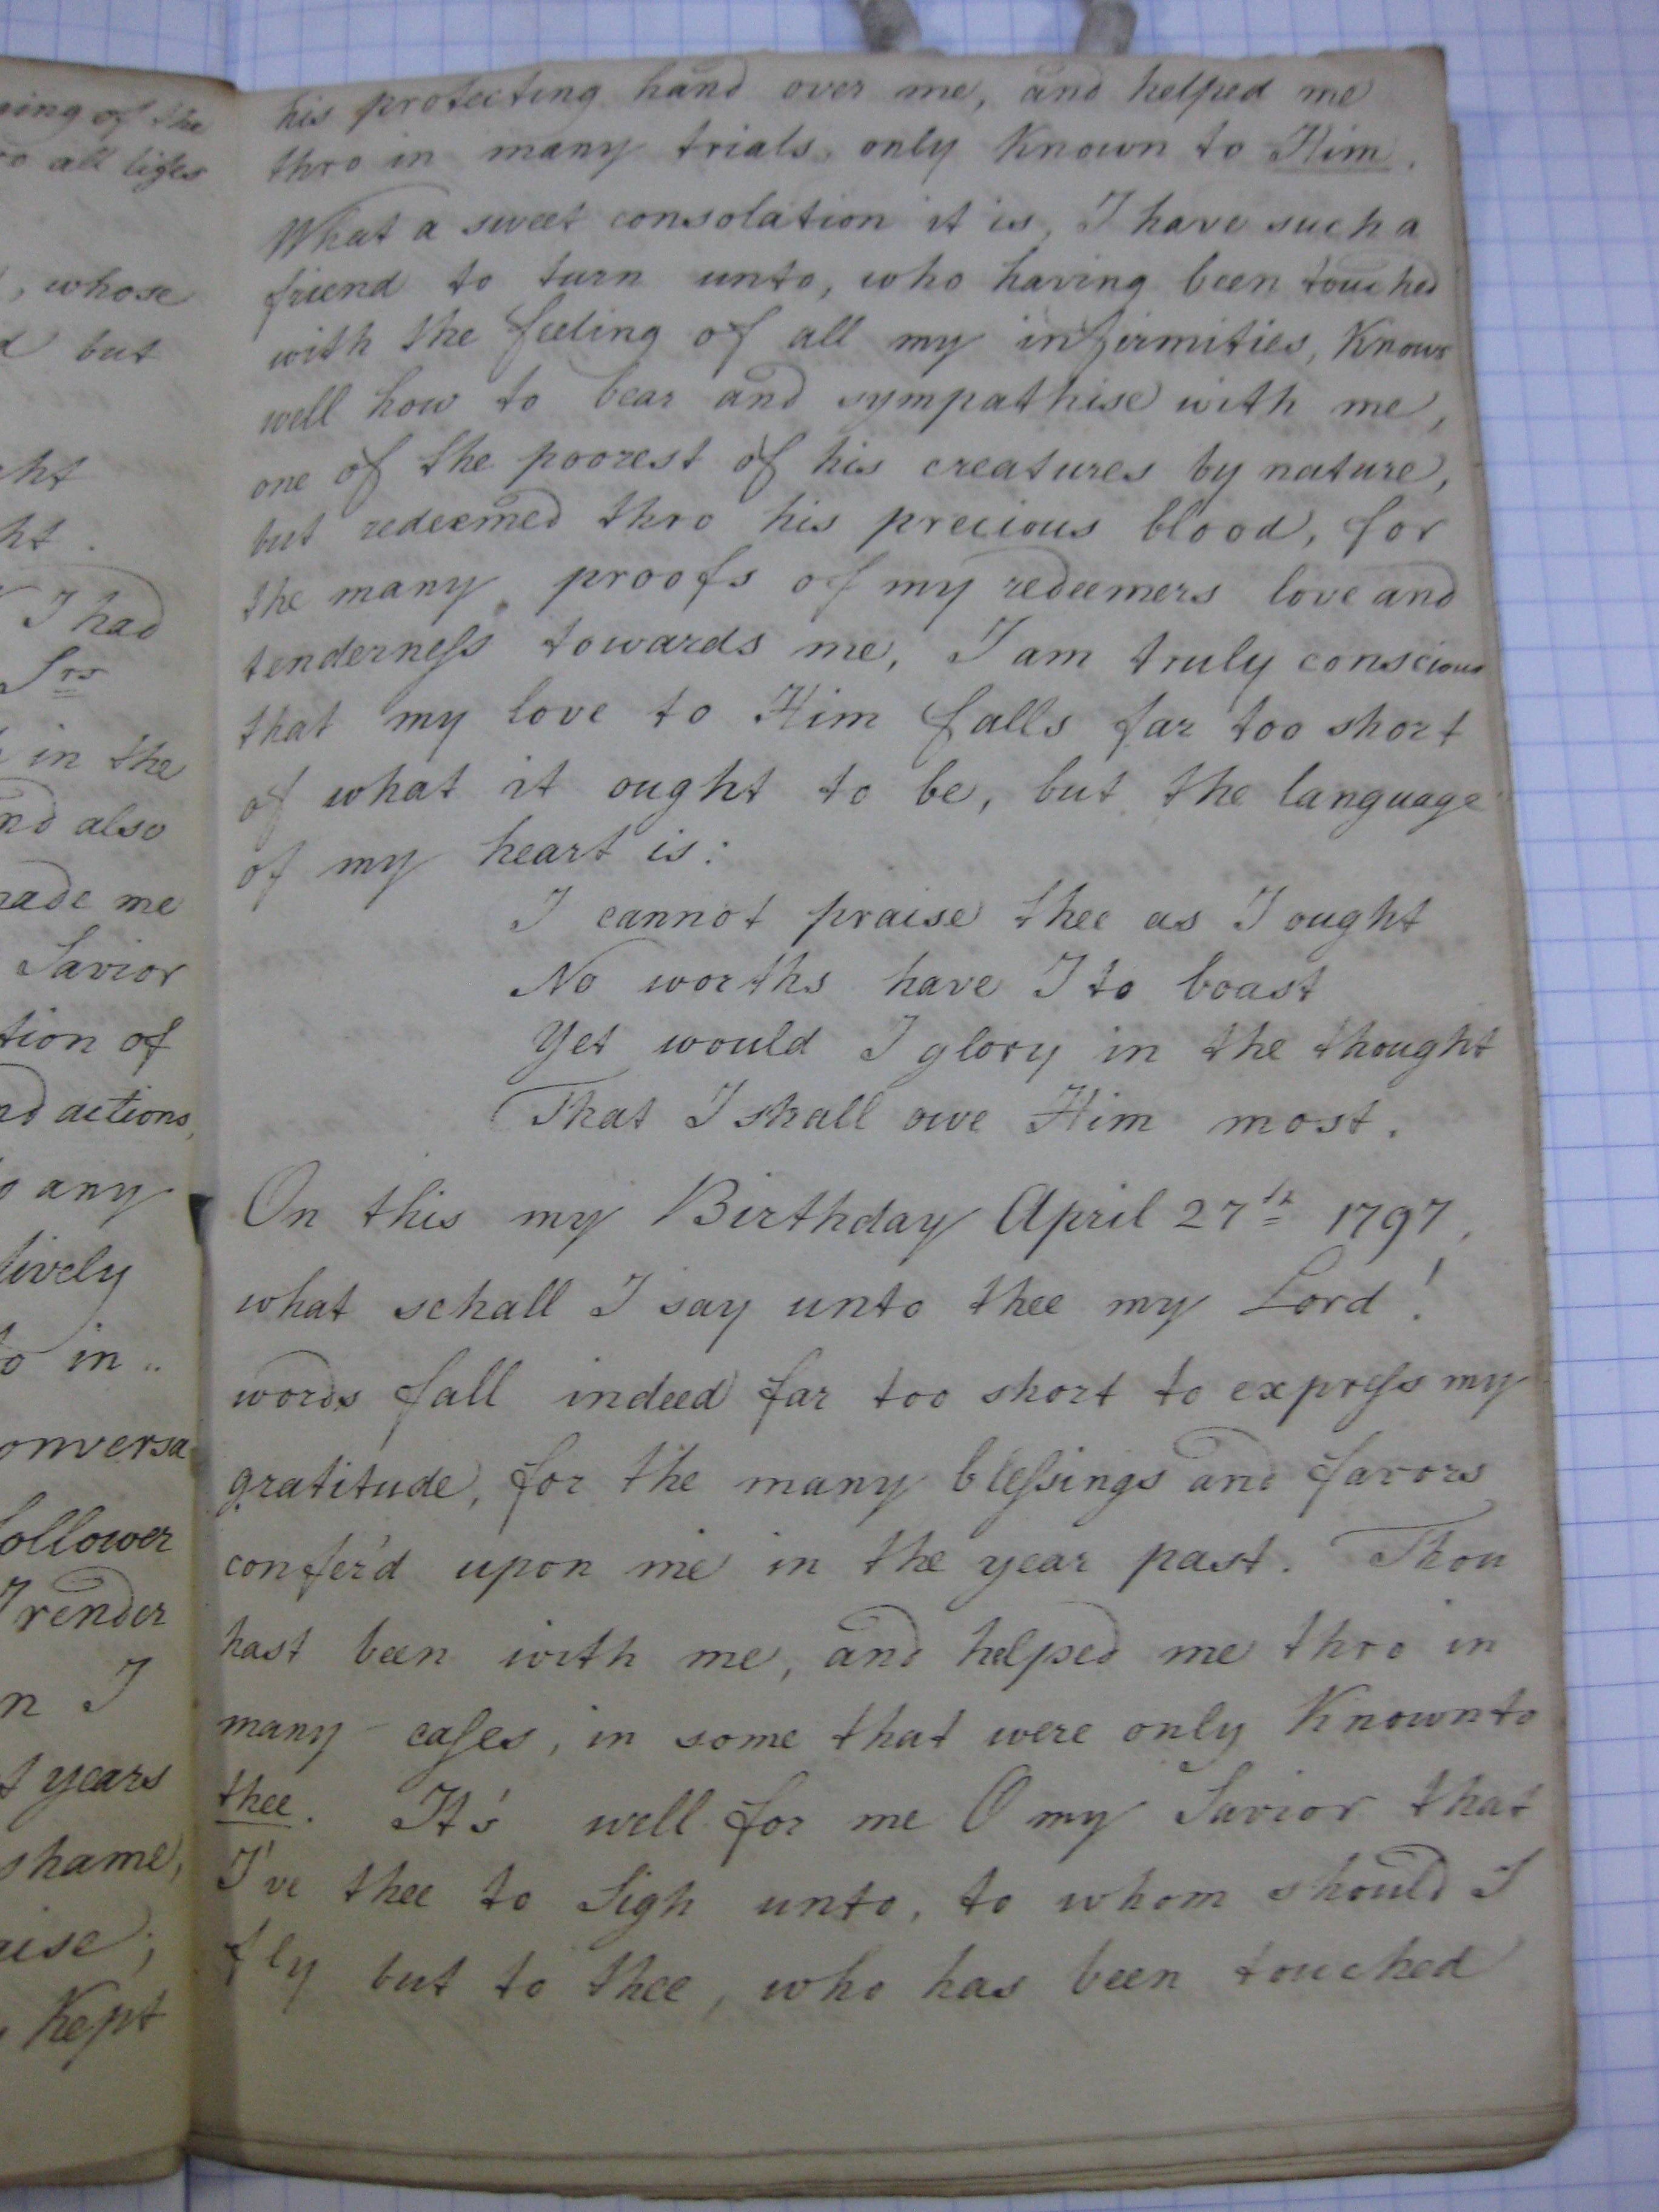 ning of the
ro all lifes
, whose
d but
ght
ht.
I had
Srs
in the
nd also
made me
Savior
tion of
nd actions,
o any
lively
to in..
onversa
follower
I render
n I
t years
shame,
aise;
Kept
his protecting hand over me, and helped me
thro in many trials, only Known to Him.
What a sweet consolation it is, I have such a
friend to turn unto, who having been touched
with the feeling of all my infirmities, Knows
well how to bear and sympathise with me,
one of the poorest of his creatures by nature,
but redeemed thro his precious blood, for
the many proofs of my redeemers love and
tenderneſs towards me, I am truly conscious
that my love to Him falls far too short
of what it ought to be, but the language
of my heart is:
I cannot praise thee as I ought
No worths have I to boast
Yet would I glory in the thought
That I shall owe Him most.
On this my Birthday April 27th 1797,
what schall I say unto thee my Lord!
words fall indeed far too short to expreſs my
gratitude, for the many bleſsings and favors
confer'd upon me in the year past. Thou
hast been with me, and helped me thro in
many caſes, in some that were only Known to
thee. It's well for me O my Savior that
I've thee to Sigh unto, to whom should I
fly but to thee, who has been touched